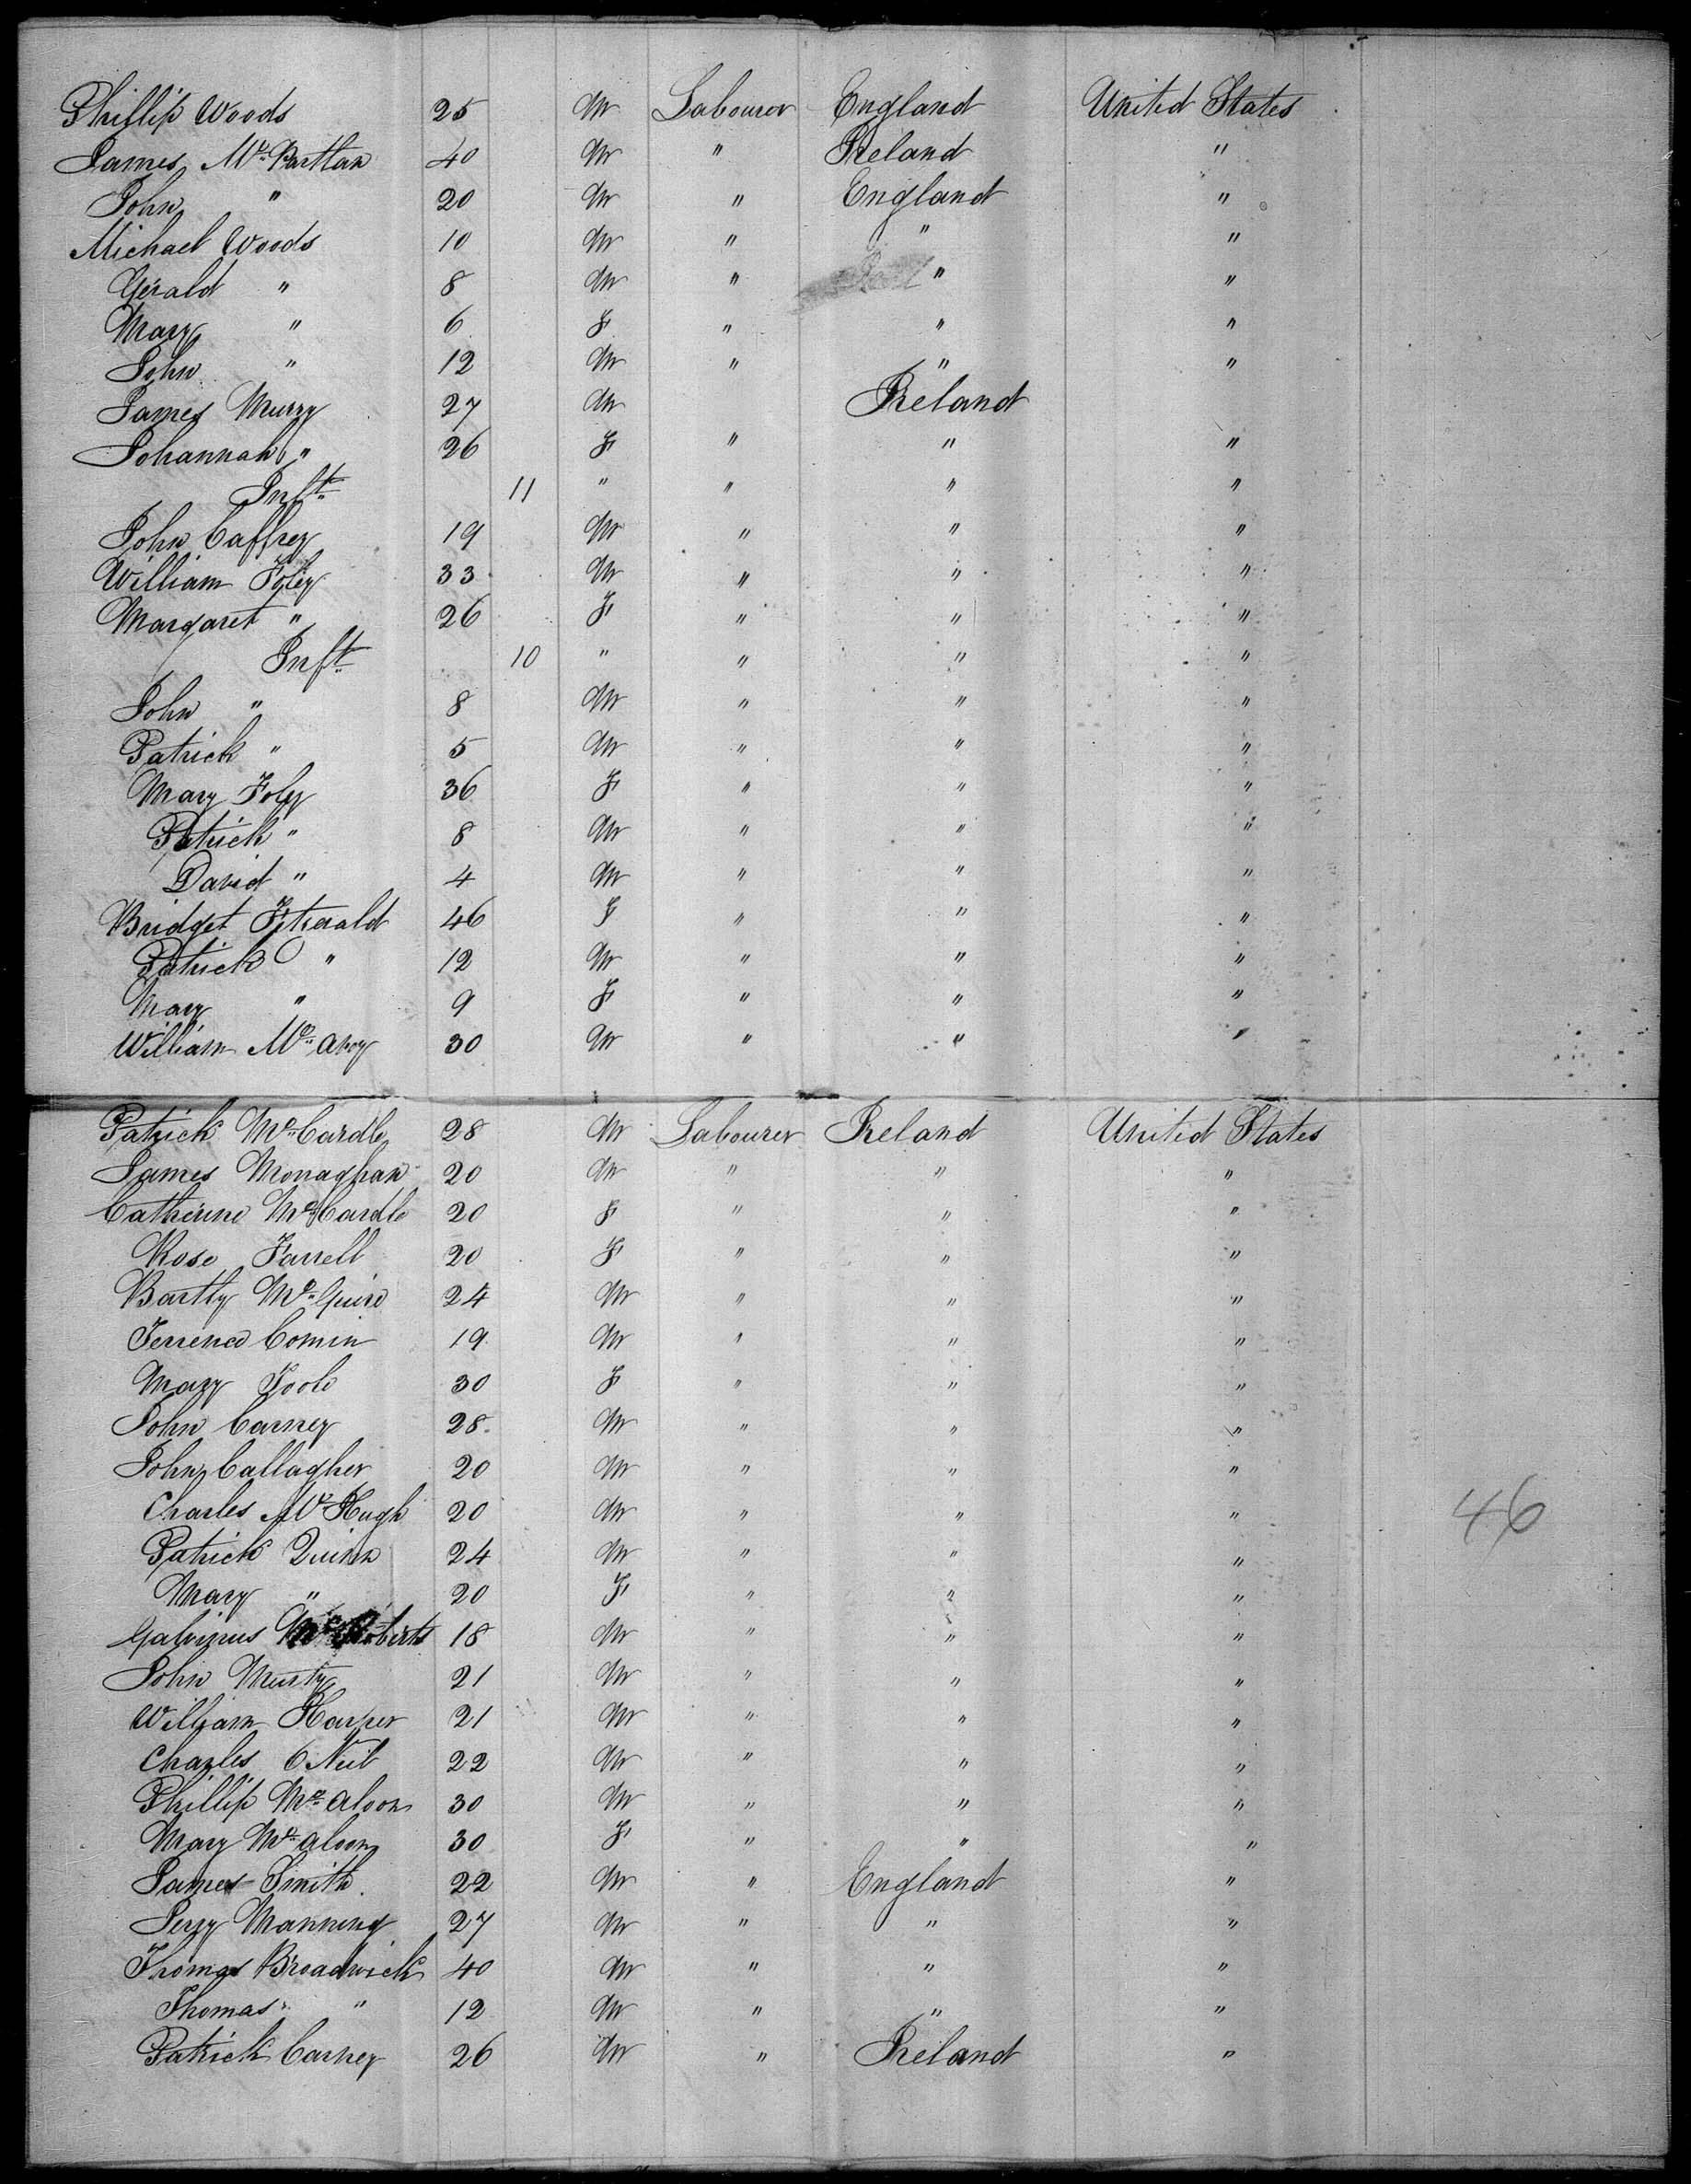 Phillip Woods 25 M Labourer England United States
James Mc Partlan 40 M " Ireland "
John " 20 M " England "
Michael Woods 10 M " " "
Gerald " 8 M " " "
Mary " 6 F " " "
John " 12 M " " "
James Murry 27 M Ireland
Johannah " 26 F " " "
Inft 11 " " " "
John Caffrey 19 M " " "
William Foley 33 M " " "
Margaret " 26 F " " "
Inft 10 " " " "
John " 8 M " " "
Patrick " 5 M " " "
Mary Foley 36 F " " "
Patrick " 8 M " " "
David " 4 M " " "
Bridget 46 F " " "
Patrick " 12 M " " "
Mary " 9 F " " "
William Mc Avoy 30 M " " "
Patrick Mc Cardle 28 M Labourer Ireland United States
James Monaghan 20 M " " "
Catherine Mc Cardle 20 F " " "
Rose Farrell 20 F " " "
Bartly Mc Guire 24 M " " "
Terrence Comin 19 M " " "
Mary Toole 30 F " " "
John Carney 28 M " " "
John Callagher 20 M " " "
Charles Mc Hugh 20 M " " " 46
Patrick Quinn 24 M " " "
Mary " 20 F " " "
Mc Roberts 18 M " " "
John Murty 21 M " " "
William Harper 21 M " " "
Charles O Neil 22 M " " "
Phillip Mc Aloon 30 M " " "
Mary Mc Aloon 30 F " " "
James Smith 22 M " England "
Perry Manning 27 M " " "
Thomas Broadwick 40 M " " "
Thomas " 12 M " " "
Patrick Carney 26 M " Ireland "